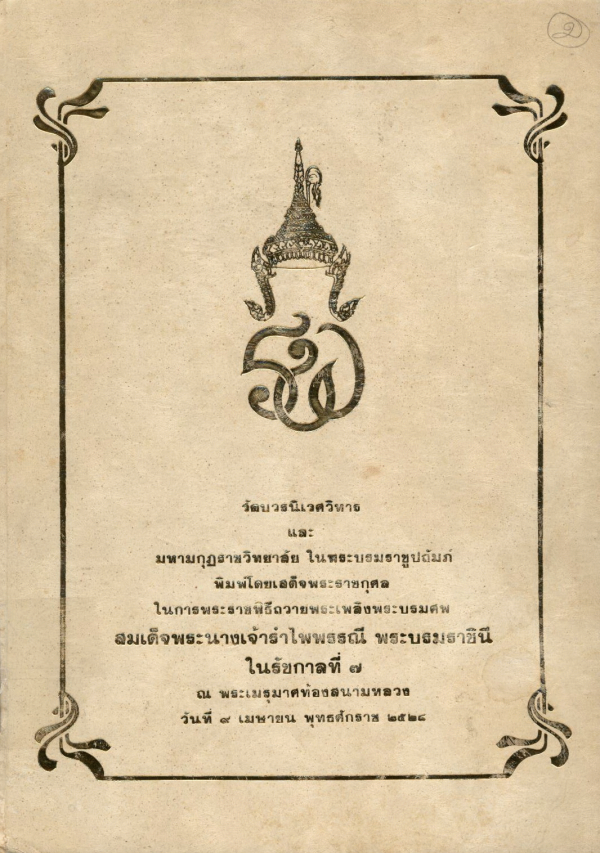 ๒
รพ
วัดบวรนิเวศวิหาร
และ
มหามกุฏราชวิทยาลัย ในพระบรมราชูปถัมภ์
พิมพ์โดยเสด็จพระราชกุศล
ในการพระราชพิธีถวายพระเพลิงพระบรมศพ
สมเด็จพระนางเจ้ารำไพพรรณี พระบรมราชินี
ในรัชกาลที่ ๗
ณ พระเมรุมาศท้องสนามหลวง
วันที่ ๙ เมษายน พุทธศักราช ๒๕๒๘